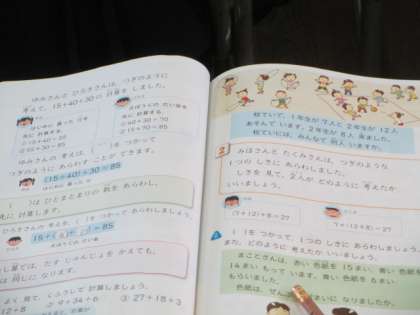 ゆみさんと ひろきさんは、つぎのように
考えて、15+40+30の 計算を しました。
はじめに あった 数を
先に 計算する。
15+40=55
55+30=85
さいごの たい数を
先に 計算する。
15+70=85
ゆみさんの 考えは、 を つかって
つぎのように あらわす ことが できます。
(15+40)+30=85
( )は ひとまとまりの 数を あらわし、
先に 計算します。
ひろきさんの 考えを、( )を つかって あらわしましょう。
=85
たし算では、たす じゅんじょを かえても、
同じに なります。
よく 見て、くふうして 計算しましょう。
12+8
② 9+34+6
③ 27+18+3
校ていで、1年生が 7人と 2年生が 12人
あそんで います。2年生が 8人 来ました。
校ていには、みんなで 何人 いますか。
2
みほさんと たくみさんは、つぎのような
1つの しきに あらわしました。
しきを 見て、2人が どのように 考えたか
いいましょう。
(7+12)+8=27
7+(12+8)=27
を つかって、1つの しきに あらわしましょう。
また、どのように 考えたか いいましょう。
まことさんは、赤い 色紙を 15まい、青い 色紙を
14まい もって います。青い 色紙を 6まい
もらいました。
色紙は、ぜんぶで 何まいに なりましたか。